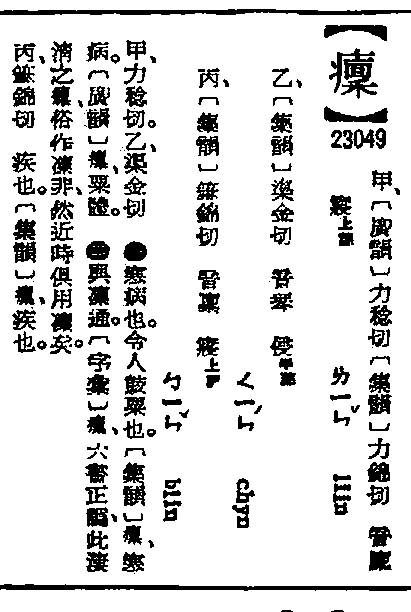 【癛】
23049
甲、〔廣韻〕力稔切〔集韻〕力錦切 音廩
寑上聲 ㄌㄧㄣˇ liin
乙、〔集韻〕渠金切 音琴 侵平聲 ㄑㄧㄣˊ chyn
丙、〔集韻〕筆錦切 音稟 寑上聲 ㄅㄧㄣˇ biin
甲、力稔切。乙、渠金切 ㊀寒病也。令人鼓粟也。〔集韻〕癛、寒
病。〔廣韻〕癛、粟體。㊁與凜通。〔字彙〕癛、六書正譌、此淒
凊之癛、俗作凜非、然近時俱用凜矣。
丙、筆錦切 疾也。〔集韻〕癛、疾也。